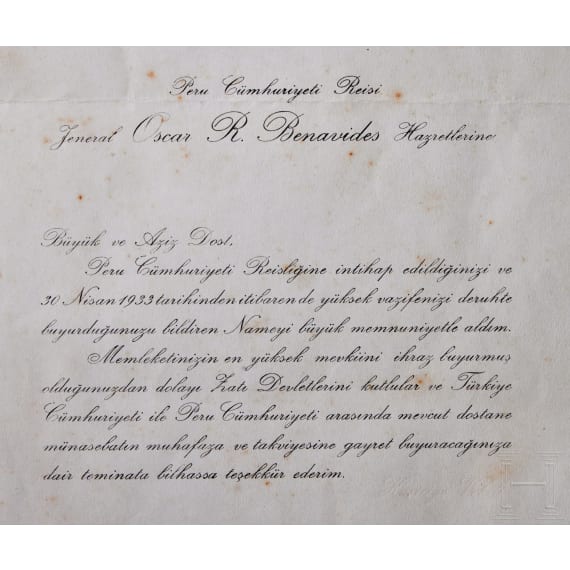 Peru Cümhuriyeti Reisi
Jeneral Oscar R. Benavides Hazretlerine
Büyük ve Aziz Dost,
Peru Cümhuriyeti Reisliğine intihap edildiğinizi ve
30 Nisan 1933 tarihinden itibaren de yüksek vazifenizi deruhte
buyurduğunuzu bildiren Nameyi büyük memnuniyetle aldım.
Memleketinizin en yüksek mevkiini ihraz buyurmuş
olduğunuzdan dolayı Zatı Devletlerini kutlular ve Türkiye
Cümhuriyeti ile Peru Cümhuriyeti arasında mevcut dostane
münasebatın muhafaza ve takviyesine gayret buyuracağınıza
dair teminata bilhassa teşekkür ederim.